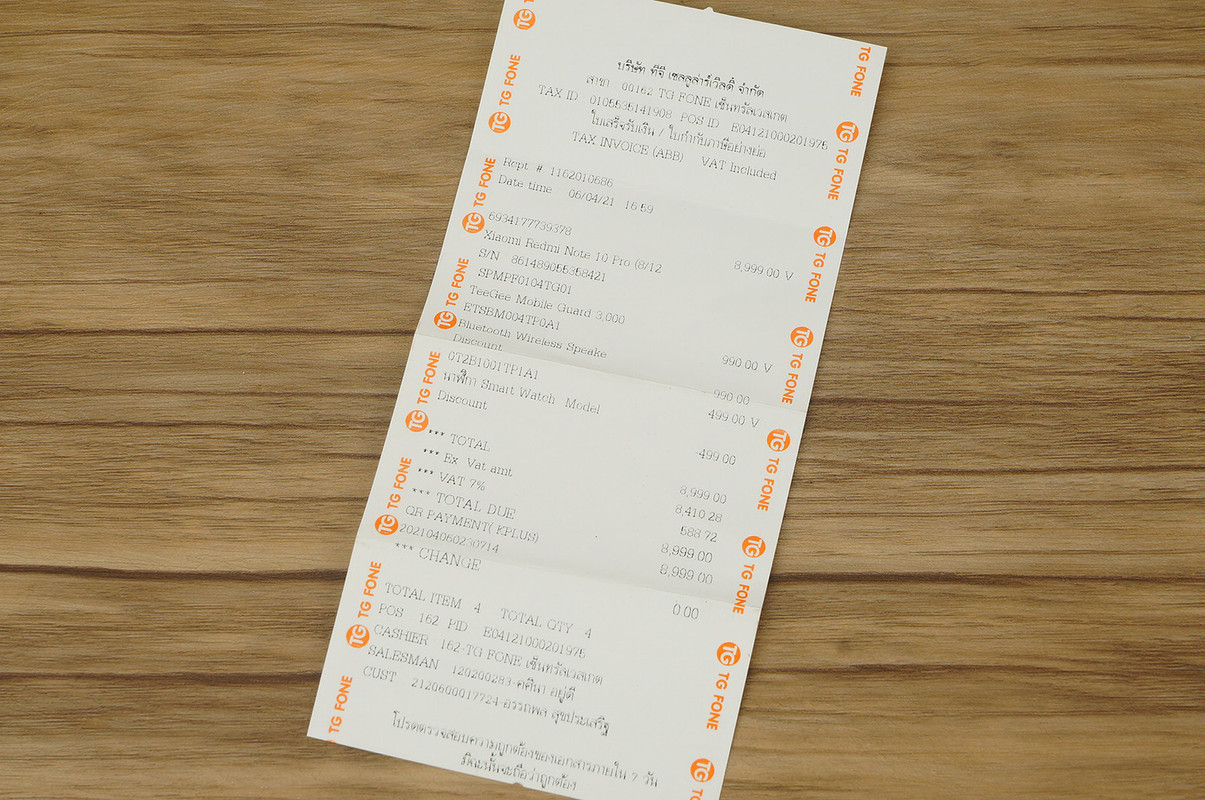 บริษัท ทีจี เซลลูล่าร์เวิลด์ จำกัด
สาขา 00162 TG FONE เซ็นทรัลเวสเกต
TAX ID 0105535141908 POS ID E04121000201975
ใบเสร็จรับเงิน / ใบกำกับภาษีอย่างย่อ
TAX INVOICE (ABB) VAT Included
Rcpt # 1162010686
Date time 06/04/21 16:59
6934177739378
Xiaomi Redmi Note 10 Pro (8/12 8,999.00 V
S/N 861489055358421
SPMPF0104TG01
TeeGee Mobile Guard 3,000
ETSBM004TP0A1
Bluetooth Wireless Speake 990.00 V
Discount -990.00
0T2B1001TP1A1
นาฬิกา Smart Watch Model 499.00 V
Discount -499.00
*** TOTAL 8,999.00
*** Ex Vat amt 8,410.28
*** VAT 7% 588.72
*** TOTAL DUE 8,999.00
QR PAYMENT( KPLUS) 8,999.00
202104060230714
*** CHANGE 0.00
TOTAL ITEM 4 TOTAL QTY 4
POS 162 PID E04121000201975
CASHIER 162-TG FONE เซ็นทรัลเวสเกต
SALESMAN 120200283-คศินา อยู่ดี
CUST 2120600017724-อรรถพล สุขประเสริฐ
โปรดตรวจสอบความถูกต้องของเอกสารภายใน 7 วัน
มิฉะนั้นจะถือว่าถูกต้อง
TG FONE
TG FONE
TG FONE
TG FONE
TG FONE
TG FONE
TG FONE
TG FONE
TG FONE
TG FONE
TG FONE
TG FONE
TG FONE
TG FONE